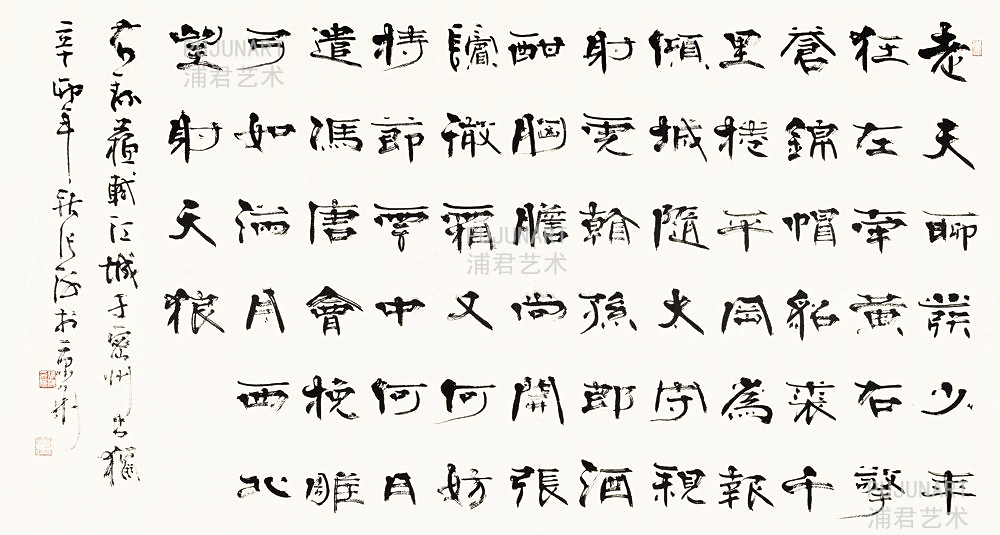 老夫聊發少年
狂左牽黃右擎
蒼錦帽貂裘千
里捲平岡為報
傾城隨太守親
射虎看孫郎酒
酣胸膽尚開張
鬢微霜又何妨
持節雲中何日
遣馮唐會挽雕
弓如滿月西北
望射天狼
右錄蘇軾江城子密州出獵
辛卯年秋
PUJUNART
浦君艺术
PUJUNART
浦君艺术
PUJUNART
浦君艺术